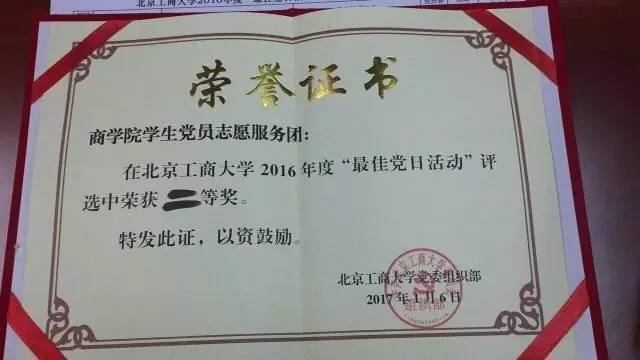 北京工商大学2016年度
荣誉证书
商学院学生党员志愿服务团：
在北京工商大学 2016 年度“最佳党日活动”评
选中荣获 二等奖。
特发此证，以资鼓励。
北京工商大学党委组织部
2017 年 1 月 6 日
组织部